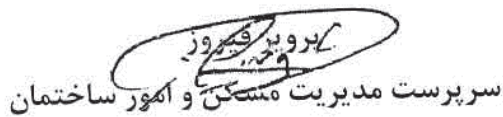 پرویز فیروز
سرپرست مدیریت مسکن و امور ساختمان